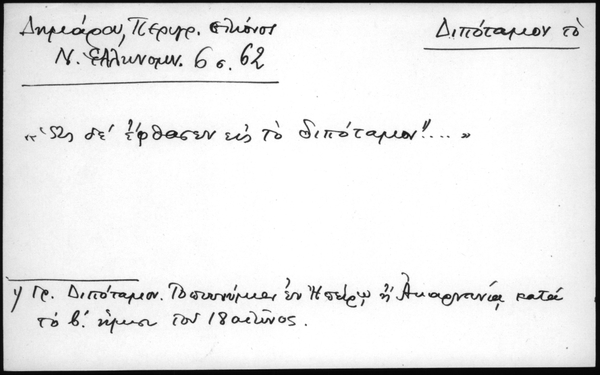 Δημάρου, Περιγρ. εικόνος
Διπόταμον τό
Ν. Ἑλληνομν. 6 σ. 62
"Ὡς δέ ἔφθασεν εἰς τό διπόταμον¹⁾... "
1) Γρ. Διπόταμον. Τοπωνύμιον ἐν Ἠπείρῳ ἤ Ἀκαρνανίᾳ κατά
τό β΄. ἥμισυ τοῦ 18 αἰῶνος.